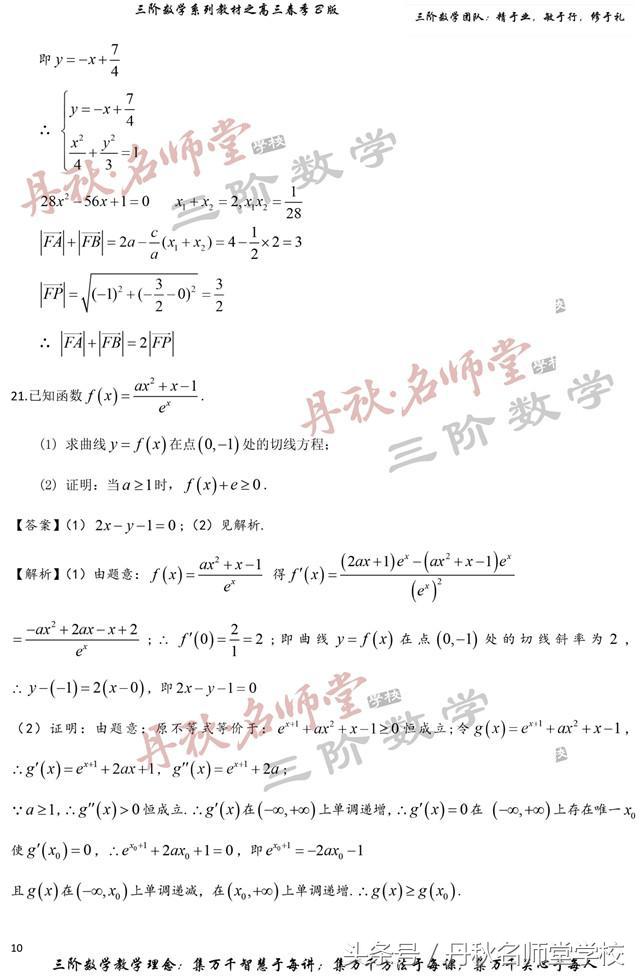 三阶数学系列教材之高三春季 B 版
三阶数学团队：精于业，敏于行，修于礼
即 y = −x + 7/4
∴ { y = −x + 7/4
x²/4 + y²/3 = 1
28x² − 56x + 1 = 0 x₁ + x₂ = 2, x₁x₂ = 1/28
|FA| + |FB| = 2a − c/a (x₁ + x₂) = 4 − 1/2 × 2 = 3
|FP| = √((−1)² + (−3/2 − 0)²) = 3/2
∴ |FA| + |FB| = 2|FP|
丹秋·名师堂 学校
三阶数学
21.已知函数 f(x) = (ax² + x − 1)/eˣ .
(1) 求曲线 y = f(x) 在点 (0, −1) 处的切线方程；
(2) 证明：当 a ≥ 1 时， f(x) + e ≥ 0 .
丹秋·名师堂 学校
三阶数学
【答案】(1) 2x − y − 1 = 0；(2) 见解析.
【解析】(1) 由题意： f(x) = (ax² + x − 1)/eˣ 得 f′(x) = ((2ax + 1)eˣ − (ax² + x − 1)eˣ)/(eˣ)²
= (−ax² + 2ax − x + 2)/eˣ ；∴ f′(0) = 2/1 = 2；即曲线 y = f(x) 在点 (0, −1) 处的切线斜率为 2，
∴ y − (−1) = 2(x − 0)，即 2x − y − 1 = 0
(2) 证明：由题意：原不等式等价于： eˣ⁺¹ + ax² + x − 1 ≥ 0 恒成立；令 g(x) = eˣ⁺¹ + ax² + x − 1，
∴ g′(x) = eˣ⁺¹ + 2ax + 1， g″(x) = eˣ⁺¹ + 2a；
∵ a ≥ 1，∴ g″(x) > 0 恒成立.∴ g′(x) 在 (−∞, +∞) 上单调递增，∴ g′(x) = 0 在 (−∞, +∞) 上存在唯一 x₀
使 g′(x₀) = 0，∴ e^(x₀+1) + 2ax₀ + 1 = 0，即 e^(x₀+1) = −2ax₀ − 1
且 g(x) 在 (−∞, x₀) 上单调递减，在 (x₀, +∞) 上单调递增.∴ g(x) ≥ g(x₀) .
丹秋·名师堂 学校
三阶数学
10
头条号 / 丹秋名师堂学校
三阶数学教学理念：集万千智慧于每讲；集万千方法于每课；集万千关心于每人